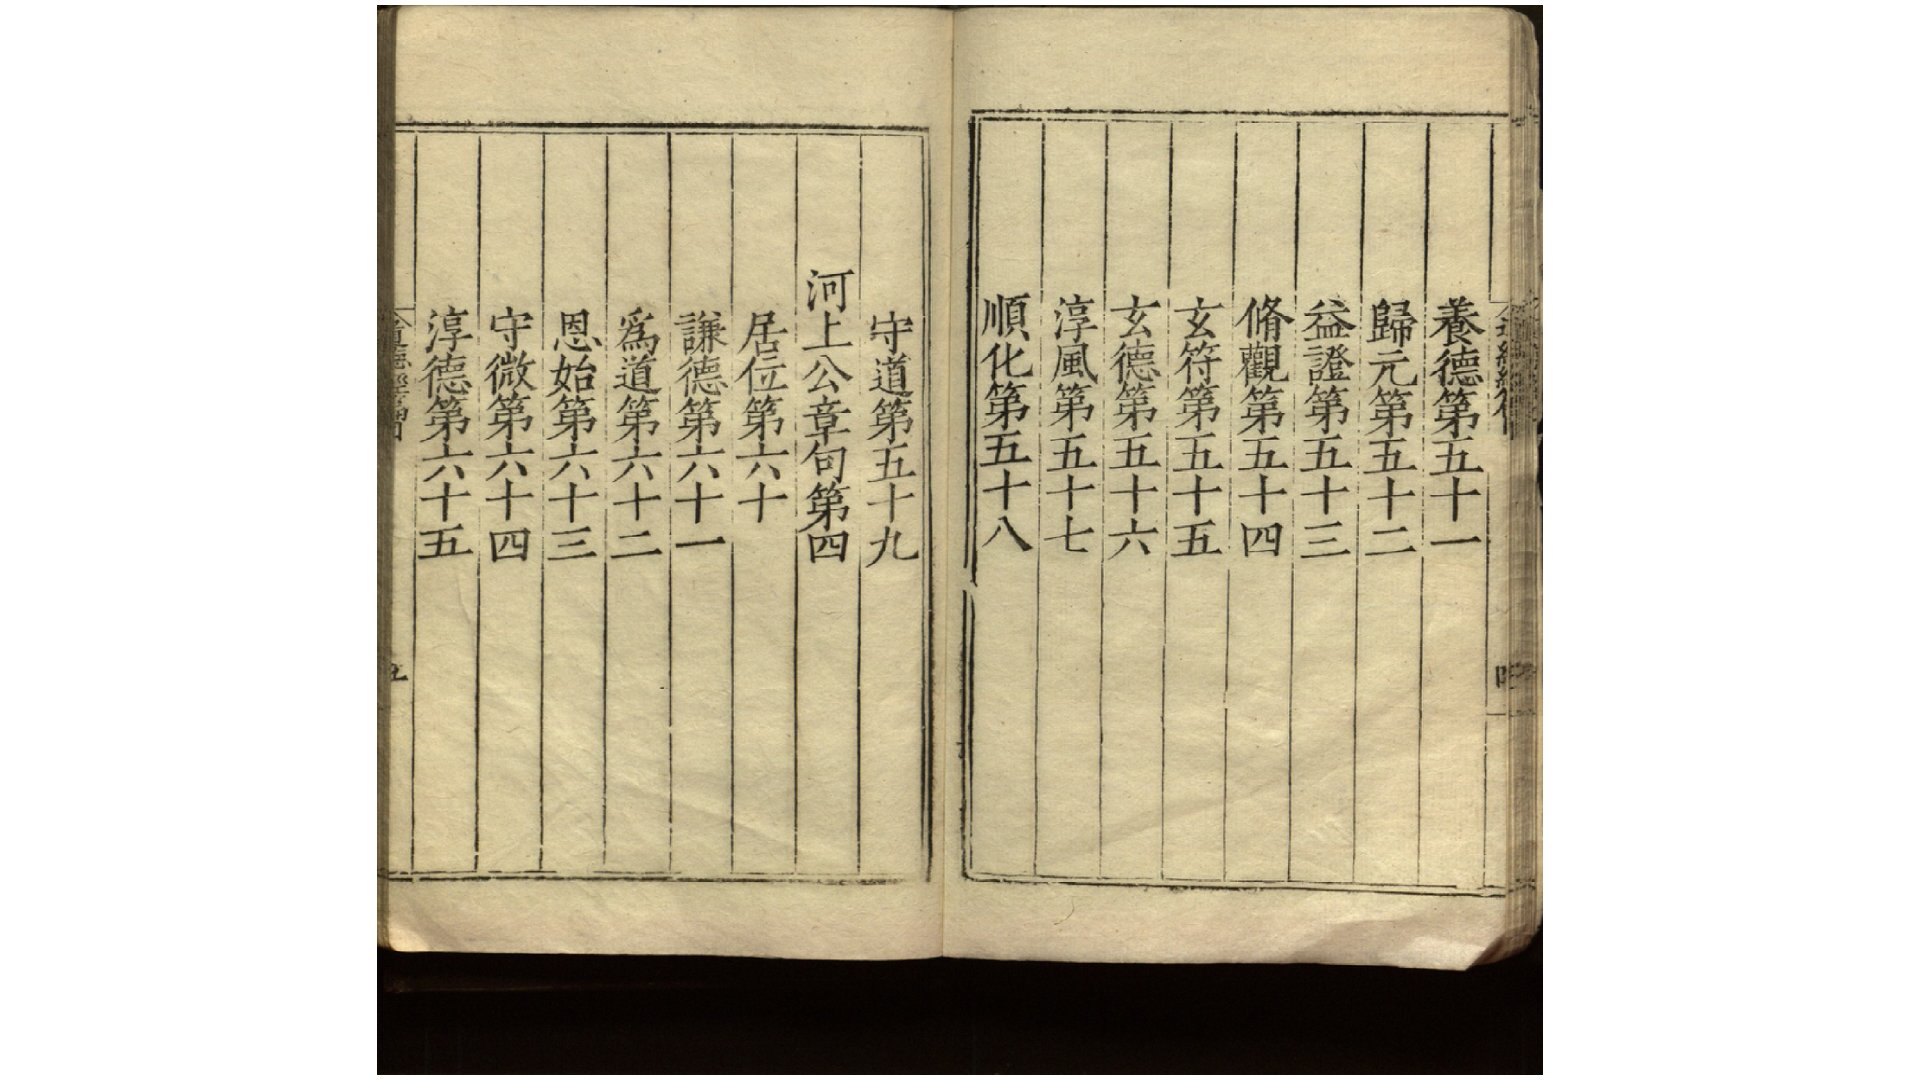 養德第五十一
歸元第五十二
益證第五十三
脩觀第五十四
玄符第五十五
玄德第五十六
淳風第五十七
順化第五十八
守道第五十九
河上公章句第四
居位第六十
謙德第六十一
爲道第六十二
恩始第六十三
守微第六十四
淳德第六十五